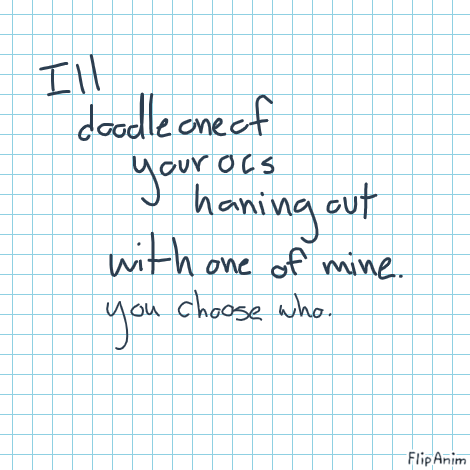 Ill
doodle one of
your ocs
haning out
with one of mine.
you choose who.
FlipAnim